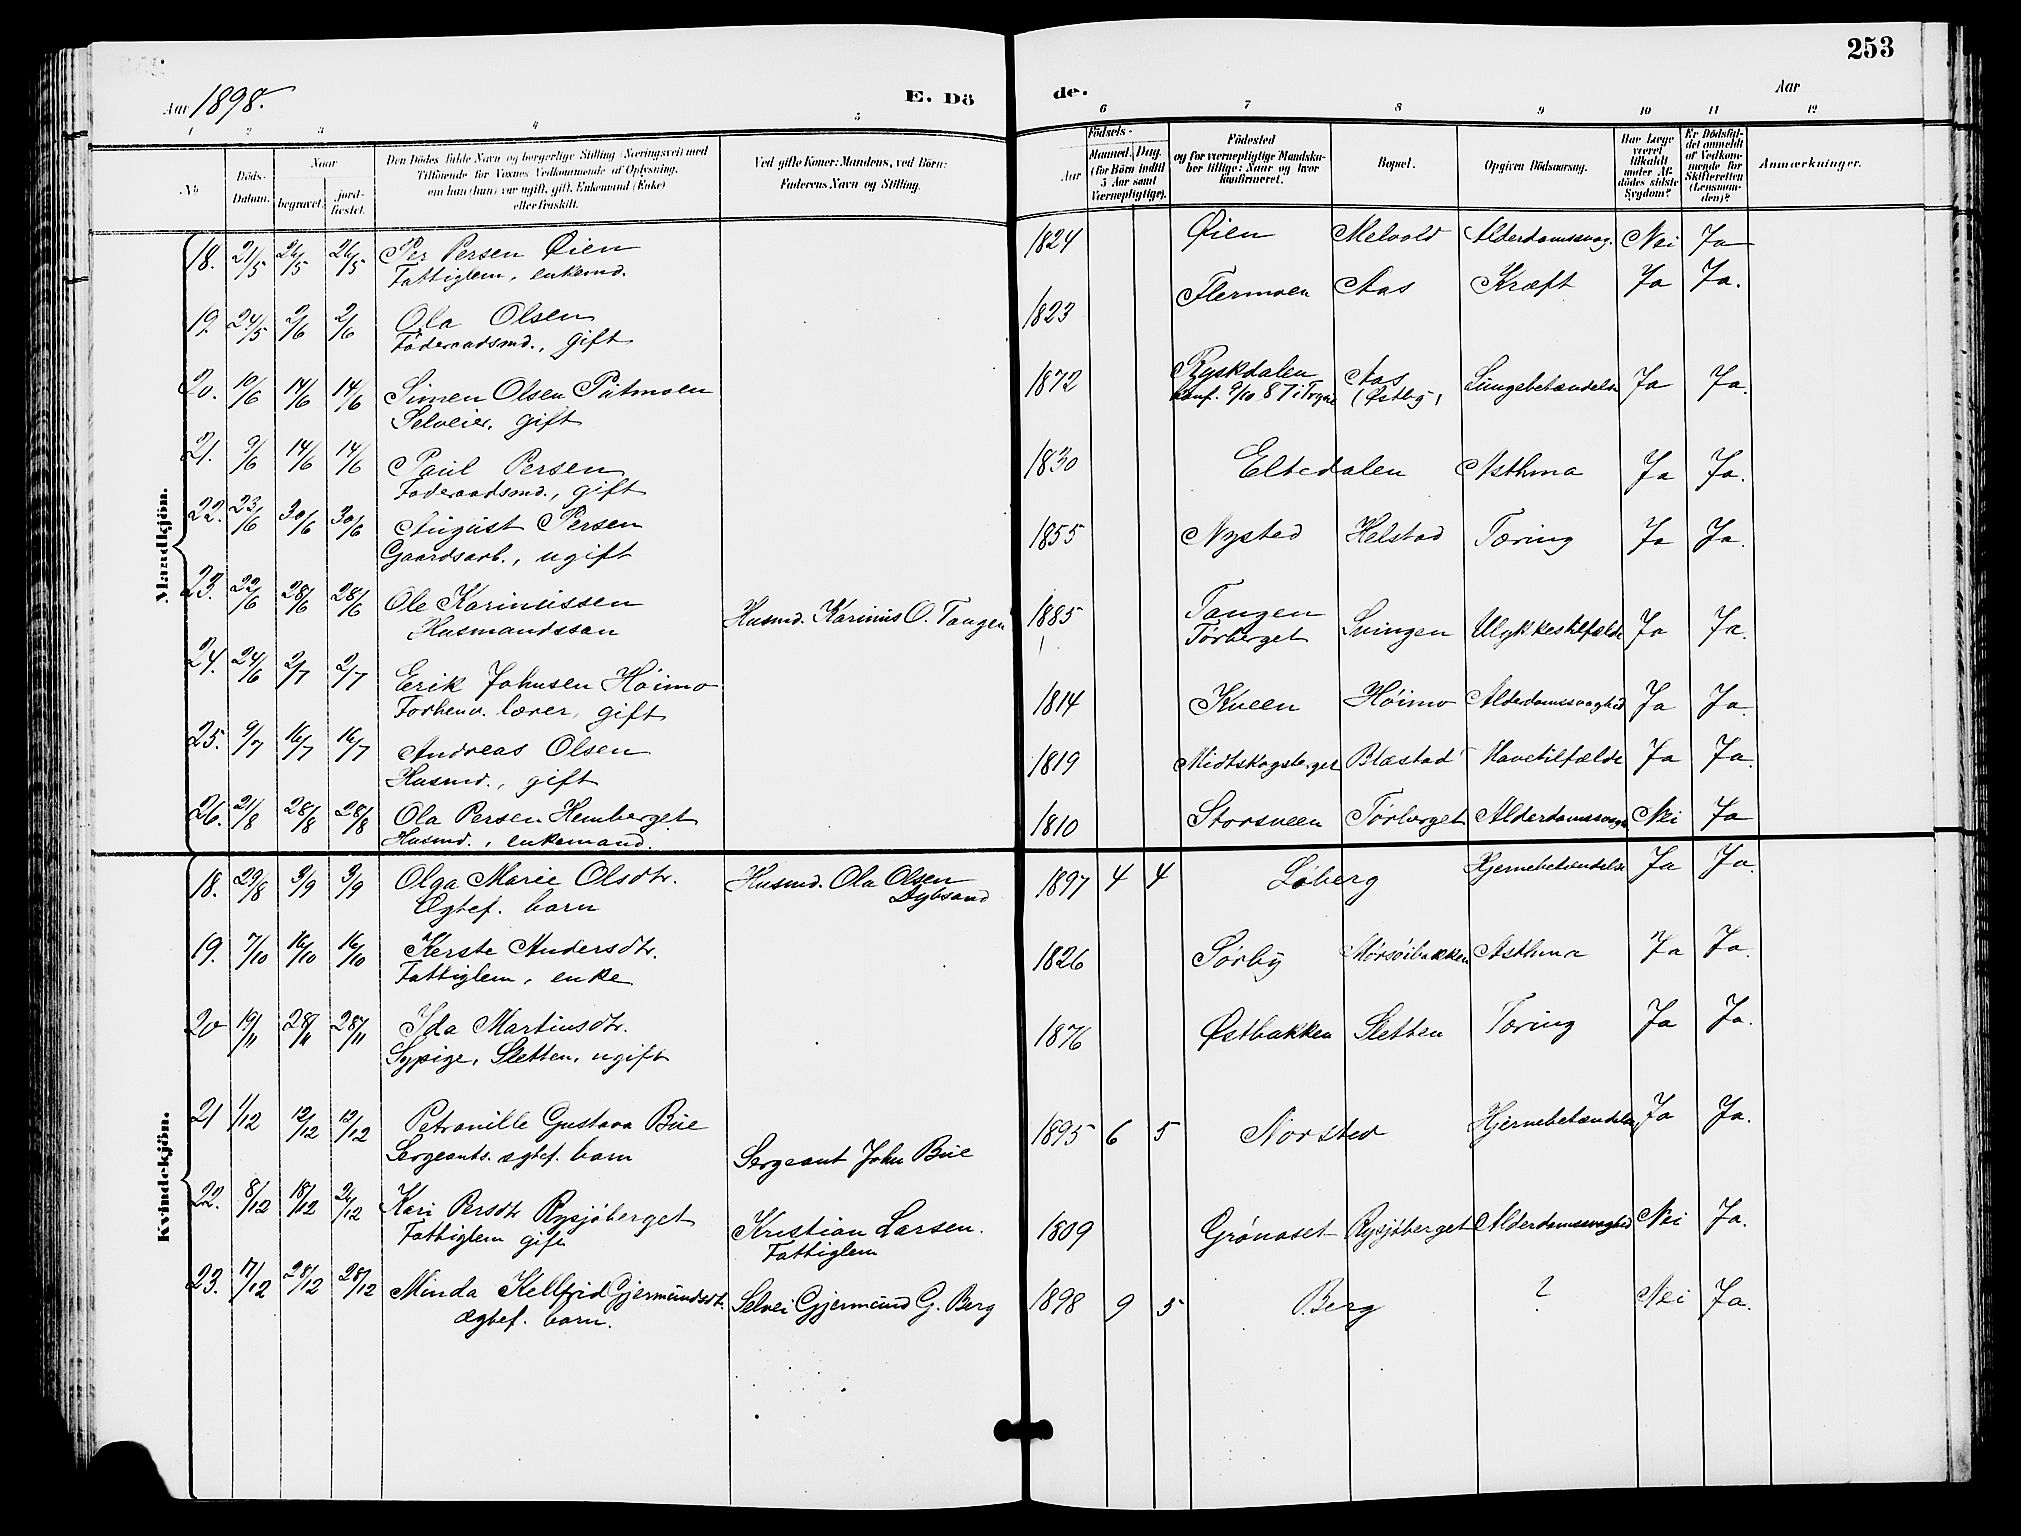 253
Aar 1898.
E. Dö de.
Aar
1 2 3 4 5 6 7 8 9 10 11 12
No
Döds-Datum.
Naar
begravet.
jord-fæstet.
Den Dödes fulde Navn og borgerlige Stilling (Næringsvei) med
Tilföiende for Voxnes Vedkommende af Oplysning,
om han (hun) var ugift, gift, Enkemand (Enke)
eller fraskilt.
Ved gifte Koner: Mandens, ved Börn:
Faderens Navn og Stilling.
Födsels-
Aar
Maaned. Dag.
(for Börn indtil 5 Aar samt Værnepligtige).
Födested
og for værnepligtige Mandskaber tillige: Naar og hvor konfirmeret.
Bopæl.
Opgiven Dödsaarsag.
Har Læge været tilkaldt under Afdödes sidste Sygdom?
Er Dödsfaldet anmeldt af Vedkommende for Skifteretten (Lensmanden)?
Anmærkninger.
Mandkjön.
18. 21/5 26/5 26/5 Per Persen Øien 1824 Øien Melvold Alderdomssvag. Nei Ja
Fattiglem, enkemd.
19. 24/5 2/6 2/6 Ola Olsen 1823 Flermoen Aas Kræft Ja Ja.
Föderaadsmd., gift
20. 10/6 14/6 14/6 Simen Olsen Putmoen 1872 Ryskdalen Aas Lungebetændelse Ja Ja.
Selveier, gift konf. 9/10 87 i Trysil (Østby)
21. 9/6 14/6 14/6 Paul Persen 1830 Eltedalen Asthma Ja Ja.
Foderaadsmd., gift
22. 23/6 30/6 30/6 August Persen 1855 Nysted Helstad Tæring Ja Ja.
Gaardsarb., ugift
23. 22/6 28/6 28/6 Ole Karinussen Husmd. Karinus O. Tangen 1885 Tangen Svingen Ulykkestilfælde Ja Ja.
Husmandssøn Tørberget
24. 24/6 2/7 2/7 Erik Johnsen Höimo 1814 Kveen Höimo Alderdomssvaghed Ja Ja.
Forhenv. lærer, gift
25. 9/7 16/7 16/7 Andreas Olsen 1819 Midtskogsberget Blæstad Mavetilfælde Ja Ja.
Husmd., gift
26. 21/8 28/8 28/8 Ola Persen Hemberget 1810 Storsveen Tørberget Alderdomssvagh Nei Ja
Husmd., enkemand.
Kvindekjön.
18. 29/8 3/9 3/9 Olga Marie Olsdtr. Husmd. Ola Olsen 1897 4 4 Löberg Hjernebetændelse Ja Ja.
Ægtef. barn Dybsand
19. 7/10 16/10 16/10 Kerste Andersdtr. 1826 Sørby Mørsøibakken Asthma Ja Ja.
Fattiglem, enke
20 19/11 28/11 28/11 Ida Martinsdtr. 1876 Østbakken Sletten Tæring Ja Ja.
Sypige, Sletten, ugift
21 1/12 12/12 12/12 Petronille Gustava Bue 1895 6 5 Norsted Hjernebetændelse Ja Ja.
Sergeants. ægtef. barn Sergeant John Bue
22. 8/12 18/12 24/12 Kari Persdtr Rysjöberget Kristian Larsen. 1809 Grönaset Rysjöberget Alderdomssvaghed Nei Ja.
Fattiglem gift Fattiglem
23. 17/12 28/12 28/12 Minda Kellfrid Gjermundsdt. Selvei Gjermund G. Berg 1898 9 5 Berg ? Nei Ja.
ægtef. barn.